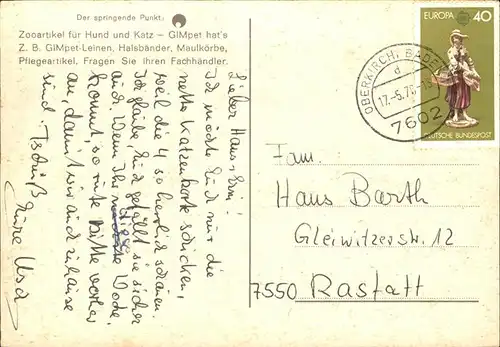 Der springende Punkt:
Zooartikel für Hund und Katz – GIMpet hat's
Z. B. GIMpet-Leinen, Halsbänder, Maulkörbe,
Pflegeartikel. Fragen Sie Ihren Fachhändler.
Lieber Hans,
Ich möchte Euch nur die
nette Katzenkarte schicken,
weil die 4 so herrlich schauen
Ich glaube, Euch gefällt sie sicher
auch. Wenn Ihr Woche
kommt, so rufe bitte vorher
an, damit wir auch zuhause
sind. Tschüß
Eure Usch
EUROPA 40
DEUTSCHE BUNDESPOST
OBERKIRCH, BADEN
d
17.-5.76
7602
Fam.
Hans Barth
Gleiwitzerstr. 12
7550 Rastatt